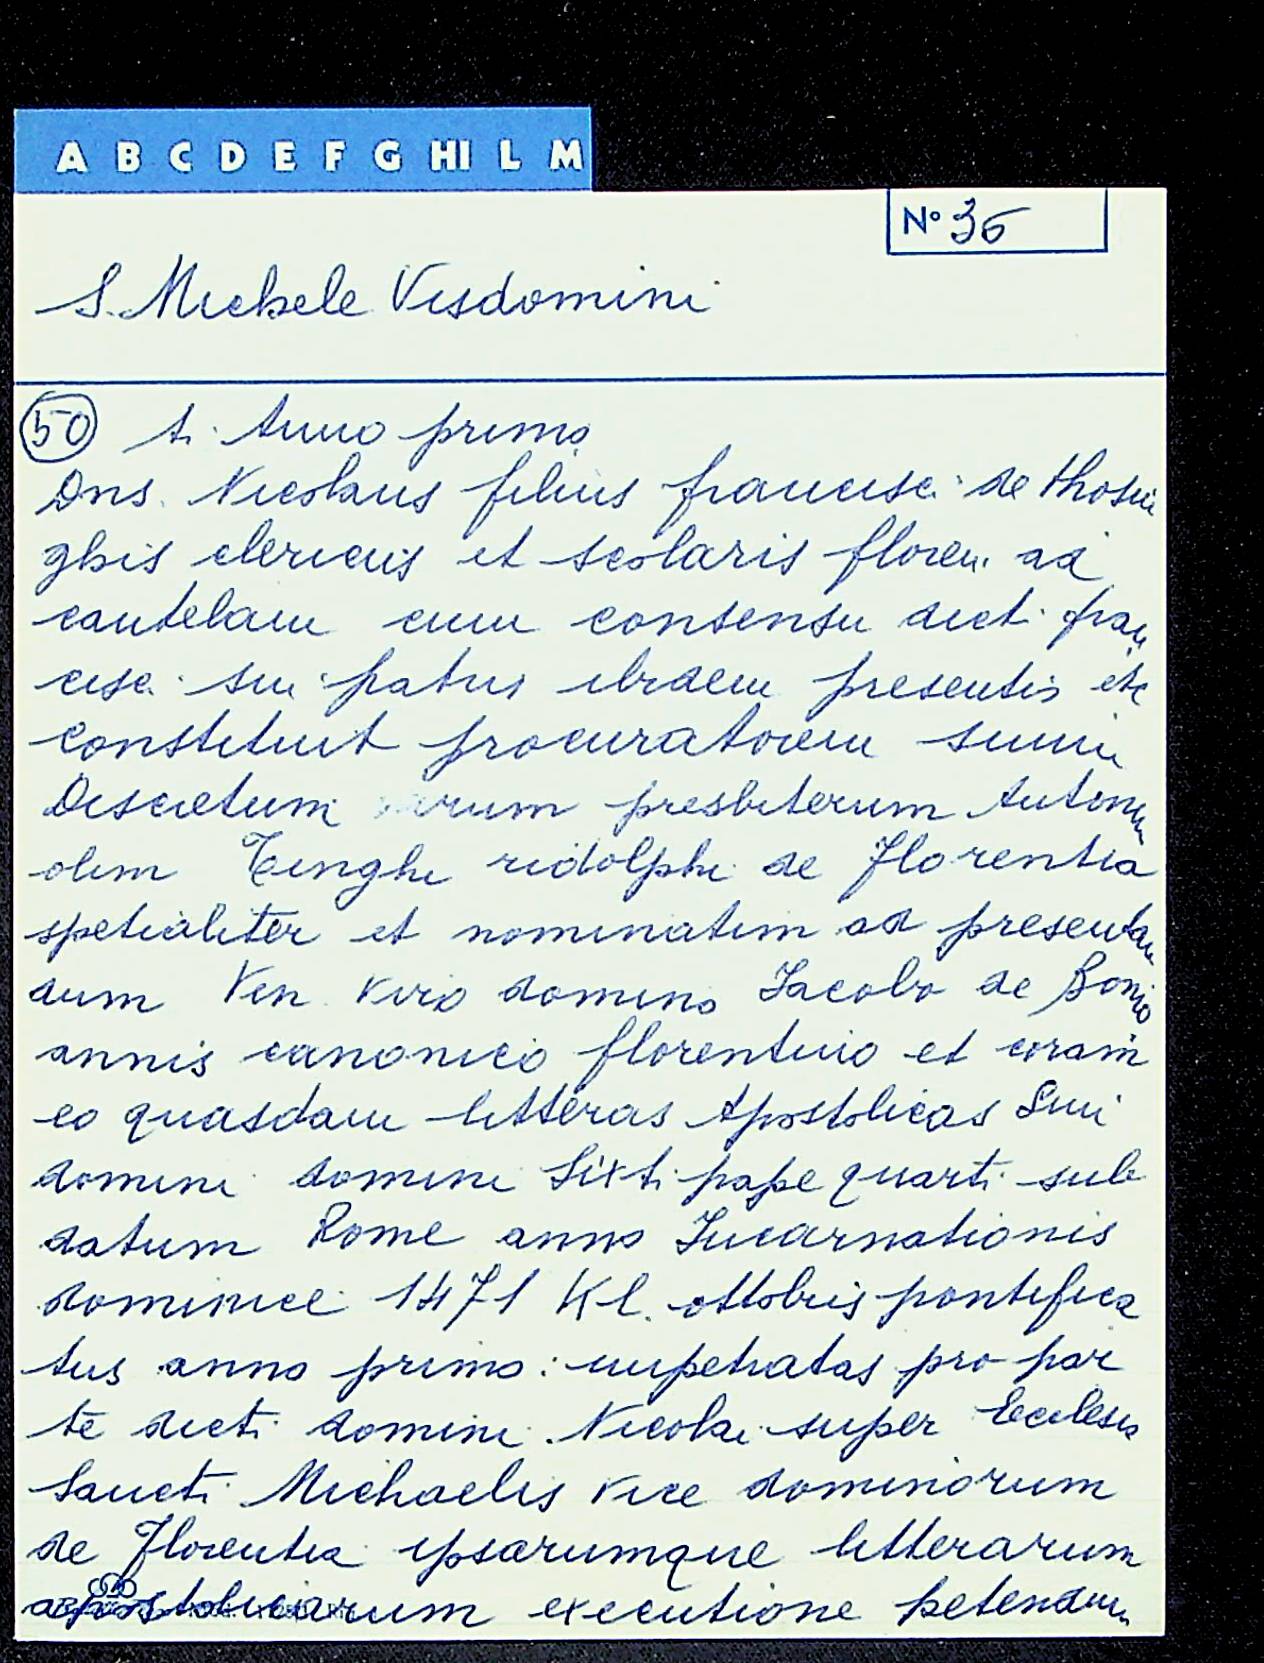 A B C D E F G HI L M
N° 36
S. Michele Visdomini
50 ti Anno primo
Dns. Nicolaus filius francisci de thosin
ghis clericus et scolaris floren. ad
cautelam cum consensu dicti fran
cisci sui patris ibidem presentis etc
constituit procuratorem suum
Discretum virum presbiterum Antonium
olim Tinghi ridolphi de Florentia
spetialiter et nominatim ad presentan
dum Ven. viro domino Iacobo de Bonio
annis canonico florentino et coram
eo quasdam litteras Apostolicas Smi
domini domini Sixti pape quarti sub
datum Rome anno Incarnationis
dominice 1471 Kl. ottobris pontifica
tus anno primo: impetratas pro par
te dicti domini Nicolai super Ecclesia
Sancti Michaelis Vice dominorum
de Florentia ipsarumque litterarum
apostolicarum executione petendum